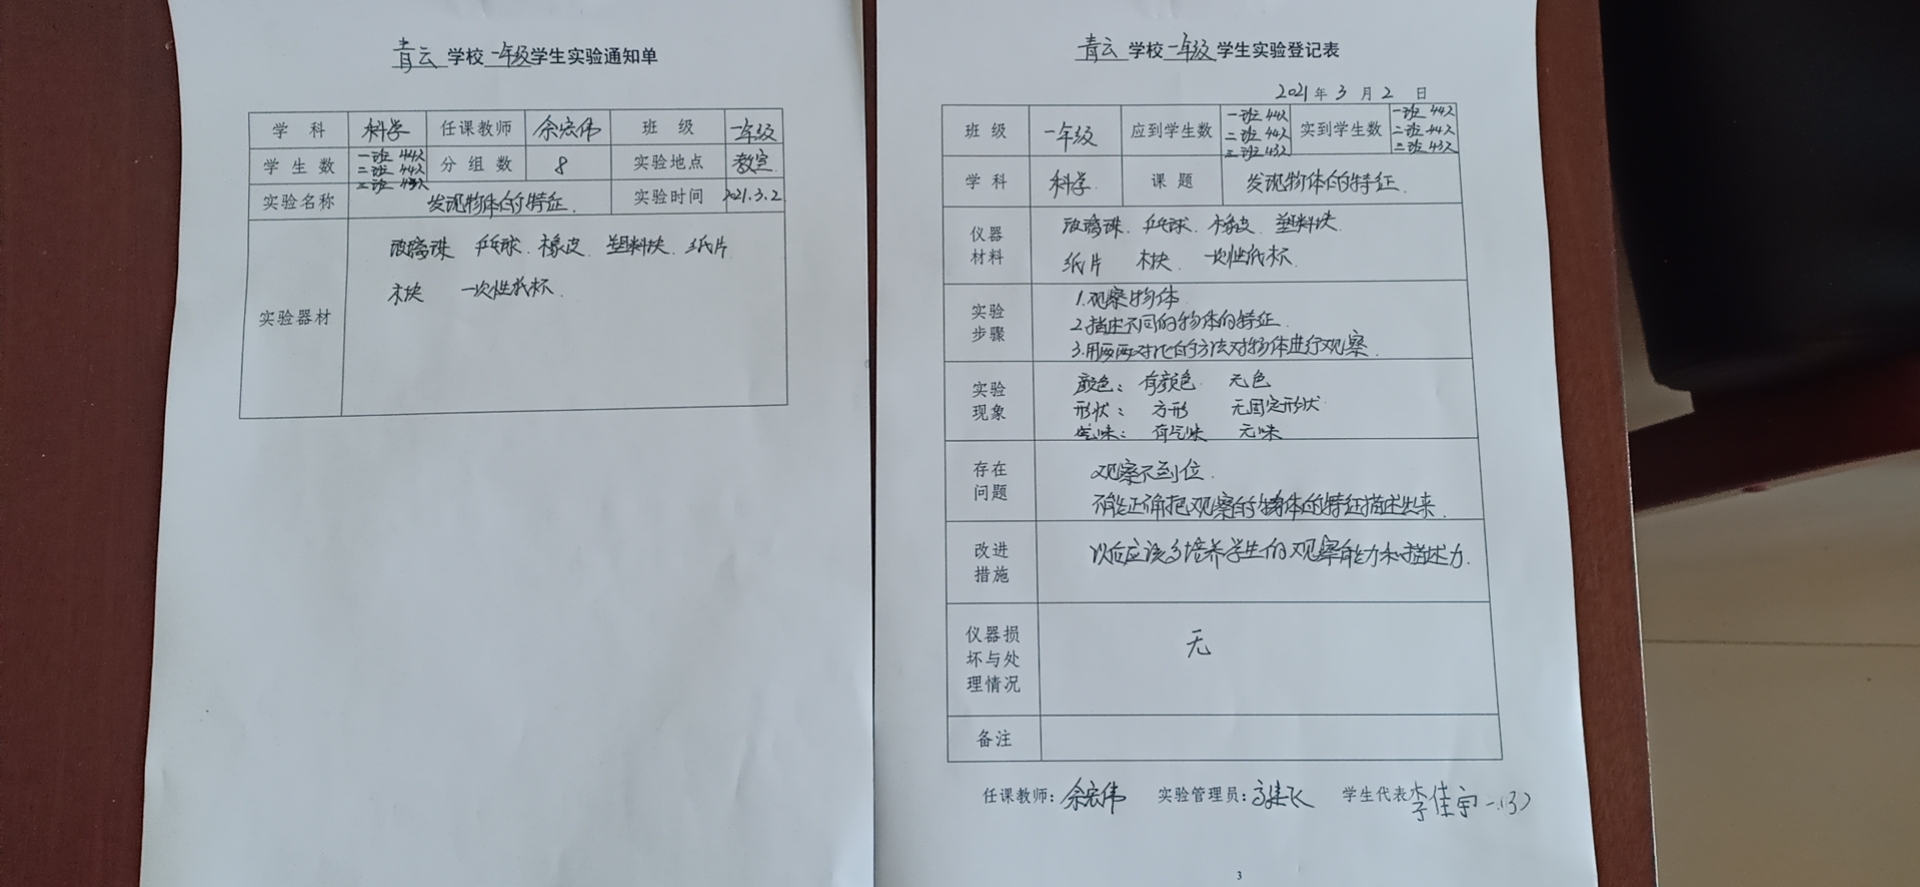 青云 学校 一年级 学生实验通知单
学科 科学 任课教师 余宏伟 班级 一年级
学生数 一班 44人 二班 44人 三班 43人 分组数 8 实验地点 教室
实验名称 发现物体的特征. 实验时间 2021.3.2
实验器材
玻璃珠 乒乓球. 橡皮. 塑料块. 纸片
木块 一次性纸杯.
青云 学校 一年级 学生实验登记表
2021 年 3 月 2 日
班级 一年级 应到学生数 一班 44人 二班 44人 三班 43人 实到学生数 一班 44人 二班 44人 三班 43人
学科 科学. 课题 发现物体的特征.
仪器材料
玻璃珠. 乒乓球. 橡皮. 塑料块.
纸片 木块. 一次性纸杯.
实验步骤
1.观察物体.
2.描述不同的物体的特征.
3.用两两对比的方法对物体进行观察.
实验现象
颜色: 有颜色 无色
形状: 方形 无固定形状
气味: 有气味 无味
存在问题
观察不到位.
不能正确把观察的物体的特征描述出来.
改进措施
以后应该多培养学生的观察能力和描述力.
仪器损坏与处理情况
无
备注
任课教师: 余宏伟 实验管理员: 学生代表 李佳宇 一.(3)
3